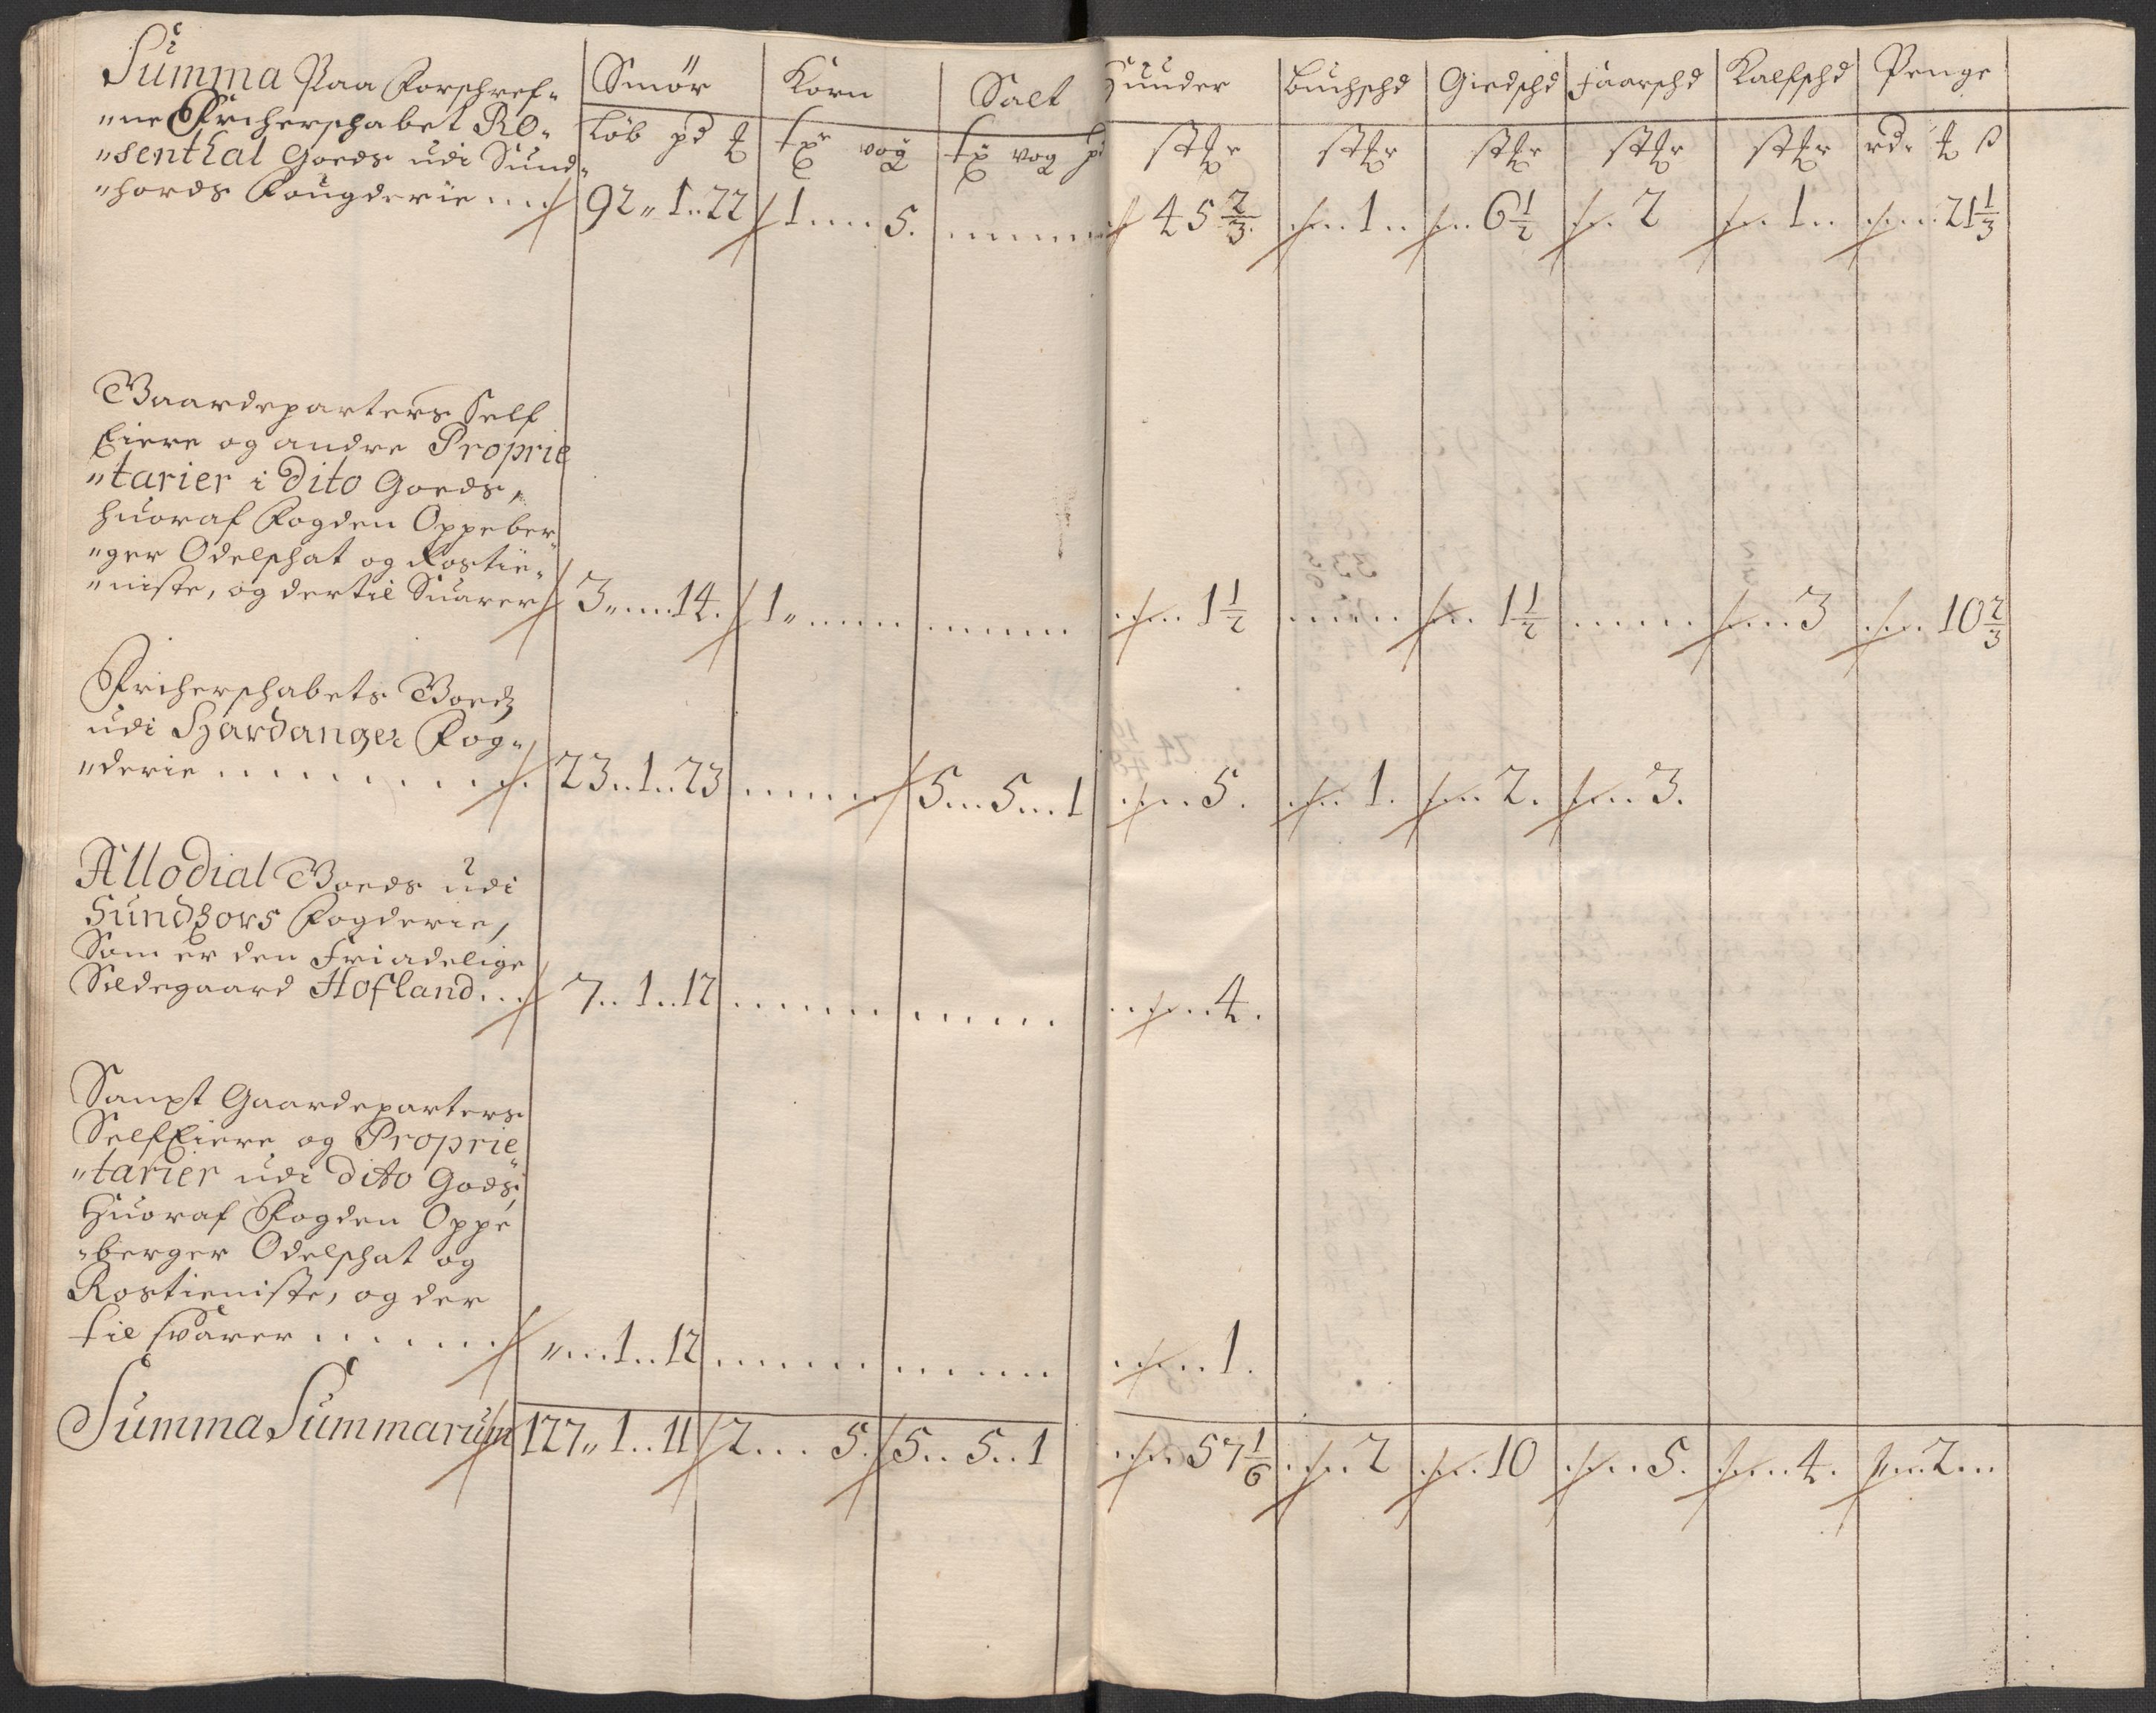 Summa Paa Forschref-
"ne Friherschabet Ro-
"senthal Goeds udi Sund-
"hords Fougderie
Smør Korn Salt Huuder Buchschd Giedschd Faarschd Kalfschd Penge
Løb pd ℔ tr vog t vog pd st&r st&r st&r st&r st&r rdr ℔ ß
92 „ 1 .. 22 1 .... 5. ........ 45 2/3. 1 .. 6 1/2 2 1 .. 21 1/3
Gaardeparters Self
Eiere og andre Proprie
"tarier i Dito Goeds,
huoraf Fogden Oppeber-
"ger Odelschat og Rostie-
"niste, og dertil Suarer 3 „ .... 14. 1 „ ..... ....... 1 1/2 ..... 1 1/2 ..... 3 10 2/3
Friherschabets Goedz
udi Hardanger Fog-
"derie ......... 23 .. 1 .. 23 ...... 5 ... 5 ... 1 5. 1. 2. 3.
Allodial Goeds udi
Sundhors Fogderie,
Som er den Friadelige
Sædegaard Hofland .. 7 .. 1 .. 12 ....... ...... 4.
Sampt Gaardeparters
Self Eiere og Proprie
"tarier udi Dito Gods,
Huoraf Fogden Oppe
"berger Odelschat og
Rostieniste, og der
til svarer ....... „ ... 1 .. 12 ....... ....... 1.
Summa Summarum 127 „ 1 .. 11 2 ... 5. 5 .. 5 .. 1 57 1/6 2 10 5. 4. 2 ...